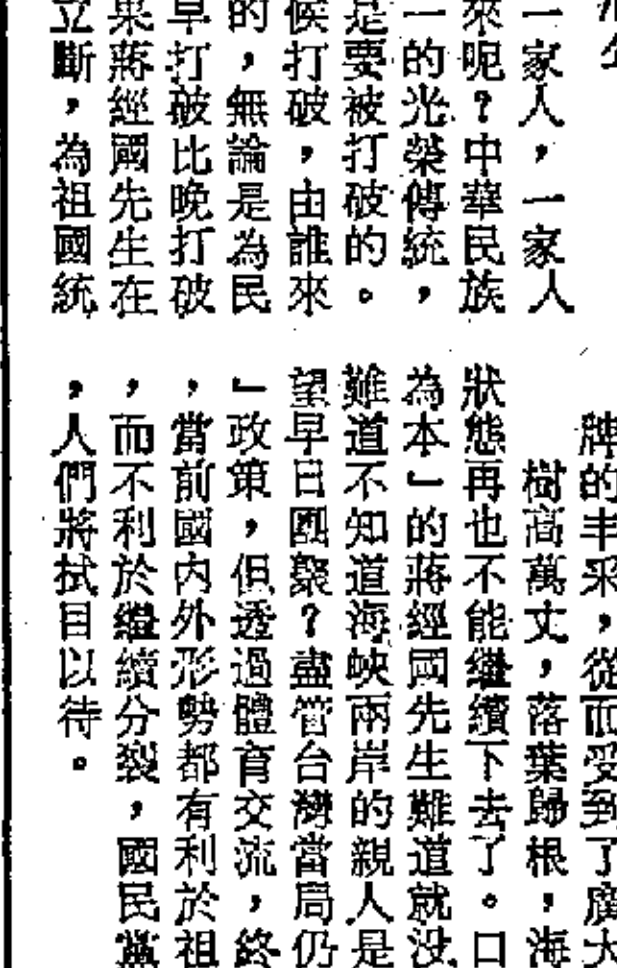 一家人，一家人
來呢？中華民族
一的光榮傳統，
是要被打破的。
候打破，由誰來
的，無論是為民
早打破比晚打破
果蔣經國先生在
立斷，為祖國統
牌的丰采，從而受到了廣大
樹高萬丈，落葉歸根，海
狀態再也不能繼續下去了。口
為本」的蔣經國先生難道就没
難道不知道海峽兩岸的親人是
望早日團聚？盡管台灣當局仍
」政策，但透過體育交流，終
，當前國內外形勢都有利於祖
，而不利於繼續分裂，國民黨
，人們將拭目以待。